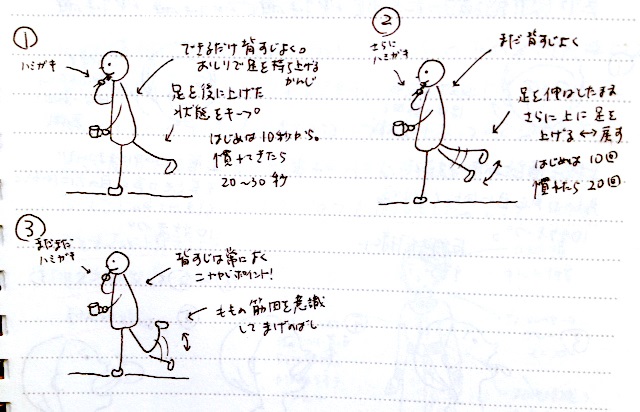 ①
ハミガキ
できるだけ背すじよく。
おしりで足を持ち上げる
かんじ
足を後に上げた
状態をキープ。
はじめは10秒から。
慣れてきたら
20〜30秒
②
さらに
ハミガキ
まだ背すじよく
足を伸ばしたまま
さらに上に足を
上げる↔戻す
はじめは10回
慣れたら20回
③
まだまだ
ハミガキ
背すじは常によく
こそがポイント!
ももの筋肉を意識
してまげのばし